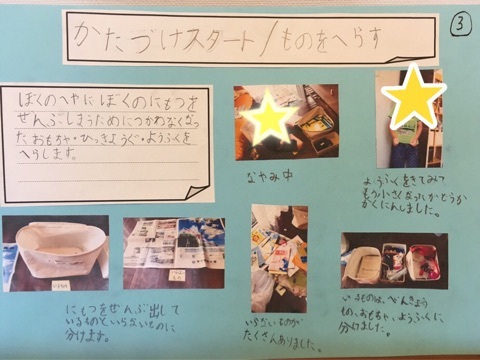 ③
かたづけスタート/ものをへらす
ぼくのヘヤにぼくのにもつを
ぜんぶしまうためにつかわなくなっ
たおもちゃ・ひっきようぐ・ようふくを
へらします。
なやみ中
ようふくをきてみて
もう小さくなってないかどうか
かくにんしました。
にもつをぜんぶ出して
いるものといらないものに
分けます。
いらないものが
たくさんありました。
いるものは、べんきょう
もの、おもちゃ、ようふくに
分けました。